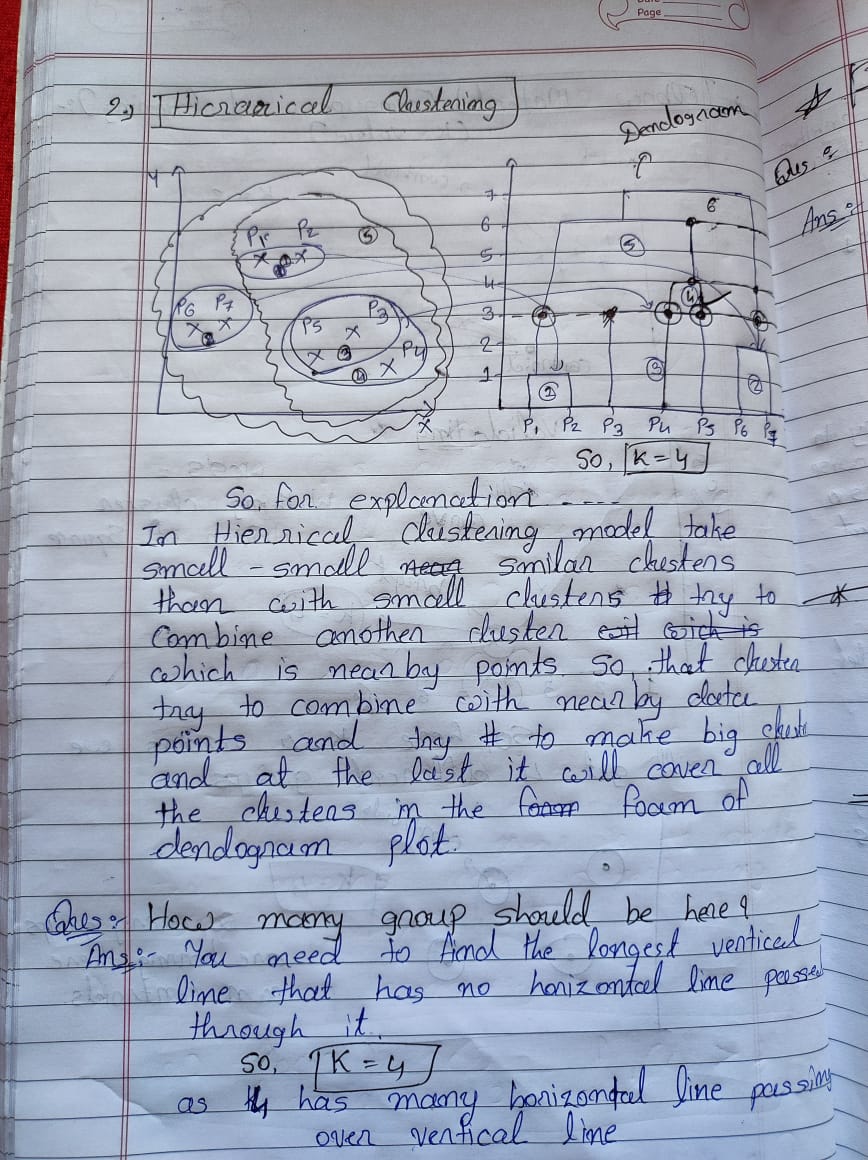 Page
2.) Hicrarical Clustening
Dendogram
Qus :
Ans :
Y
7
6
5
4
3
2
1
P1 P2
5
1
P6 P7
2
P5 P3
3
P4
4
X
6
5
4
3
1
2
P1 P2 P3 P4 P5 P6 P7
So, K = 4
So, for explanation ----
In Hierrical Clustening model take
small - small similar clusters
than with small clusters try to
Combine another cluster
which is nearby points. So, that cluster
try to combine with near by data
points and try to make big
and at the last it will cover all
the clusters in the foam of
dendogram plot.
Ques :- How many group should be here ?
Ans :- You need to find the longest vertical
line that has no horizontal line passed
through it.
So, K = 4
as 4 has many horizontal line passing
over vertical line